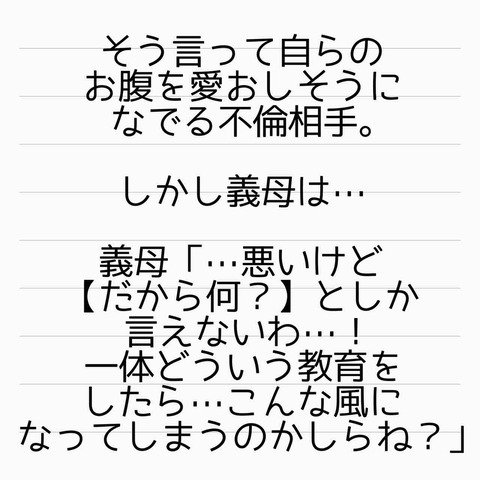 そう言って自らの
お腹を愛おしそうに
なでる不倫相手。
しかし義母は…
義母「…悪いけど
【だから何？】としか
言えないわ…！
一体どういう教育を
したら…こんな風に
なってしまうのかしらね？」